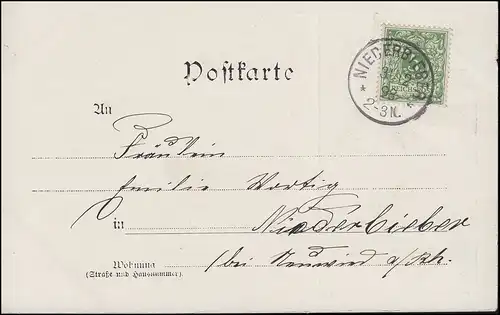 NIEDERBIEBER
2-3N.
Postkarte
An
Fräulein
Emilie Wortig
in Niederbieber
Wohnung
(Straße und Hausnummer)
(bei Neuwied a/Rh.